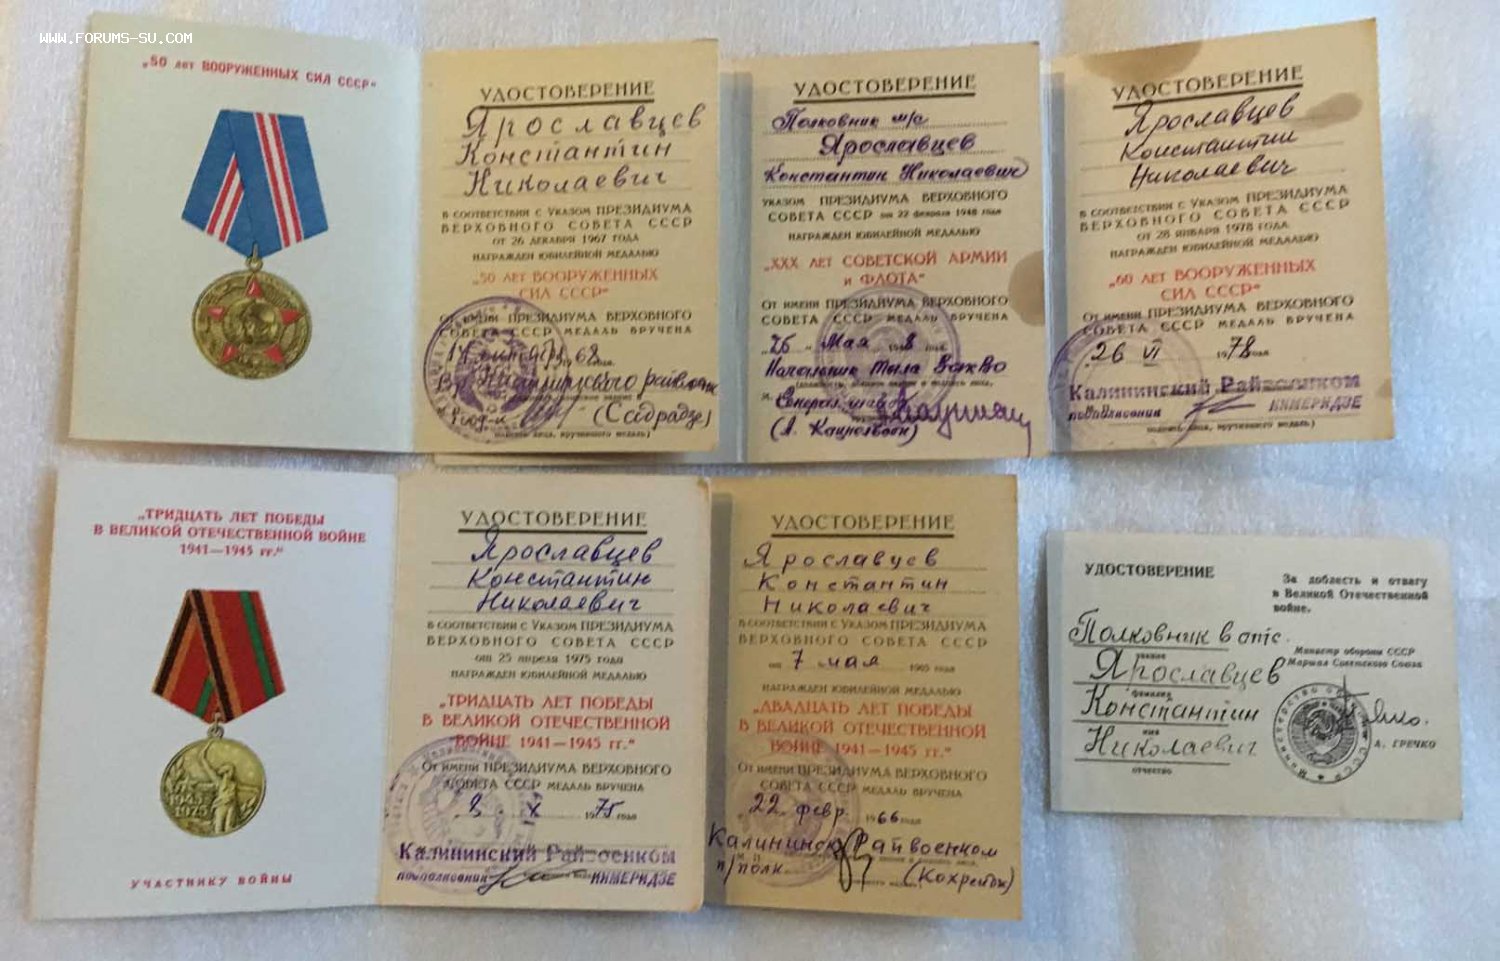 WWW.FORUMS-SU.COM
„50 лет ВООРУЖЕННЫХ СИЛ СССР"
УДОСТОВЕРЕНИЕ
Ярославцев
Константин
Николаевич
В СООТВЕТСТВИИ С УКАЗОМ ПРЕЗИДИУМА
ВЕРХОВНОГО СОВЕТА СССР
ОТ 26 ДЕКАБРЯ 1967 ГОДА
НАГРАЖДЕН ЮБИЛЕЙНОЙ МЕДАЛЬЮ
„50 ЛЕТ ВООРУЖЕННЫХ
СИЛ СССР"
ОТ ИМЕНИ ПРЕЗИДИУМА ВЕРХОВНОГО
СОВЕТА СССР МЕДАЛЬ ВРУЧЕНА
1968 года
райвоенк
УДОСТОВЕРЕНИЕ
Полковник м/с
Ярославцев
Константин Николаевич
УКАЗОМ ПРЕЗИДИУМА ВЕРХОВНОГО
СОВЕТА СССР от 22 февраля 1948 года
НАГРАЖДЕН ЮБИЛЕЙНОЙ МЕДАЛЬЮ
„XXX ЛЕТ СОВЕТСКОЙ АРМИИ
И ФЛОТА"
ОТ ИМЕНИ ПРЕЗИДИУМА ВЕРХОВНОГО
СОВЕТА СССР МЕДАЛЬ ВРУЧЕНА
„26" Мая 1948 года
Начальник тыла ЗакВО
УДОСТОВЕРЕНИЕ
Ярославцев
Константин
Николаевич
В СООТВЕТСТВИИ С УКАЗОМ ПРЕЗИДИУМА
ВЕРХОВНОГО СОВЕТА СССР
ОТ 28 ЯНВАРЯ 1978 ГОДА
НАГРАЖДЕН ЮБИЛЕЙНОЙ МЕДАЛЬЮ
„60 ЛЕТ ВООРУЖЕННЫХ
СИЛ СССР"
ОТ ИМЕНИ ПРЕЗИДИУМА ВЕРХОВНОГО
СОВЕТА СССР МЕДАЛЬ ВРУЧЕНА
26 VI 1978 года
Калининский Райвоенком
подполковник ИНМЕРИДЗЕ
подпись лица, вручившего медаль)
„ТРИДЦАТЬ ЛЕТ ПОБЕДЫ
В ВЕЛИКОЙ ОТЕЧЕСТВЕННОЙ ВОЙНЕ
1941—1945 гг."
УЧАСТНИКУ ВОЙНЫ
УДОСТОВЕРЕНИЕ
Ярославцев
Константин
Николаевич
В СООТВЕТСТВИИ С УКАЗОМ ПРЕЗИДИУМА
ВЕРХОВНОГО СОВЕТА СССР
от 25 апреля 1975 года
НАГРАЖДЕН ЮБИЛЕЙНОЙ МЕДАЛЬЮ
„ТРИДЦАТЬ ЛЕТ ПОБЕДЫ
В ВЕЛИКОЙ ОТЕЧЕСТВЕННОЙ
ВОЙНЕ 1941—1945 гг."
ОТ ИМЕНИ ПРЕЗИДИУМА ВЕРХОВНОГО
СОВЕТА СССР МЕДАЛЬ ВРУЧЕНА
3. X 1975 года
Калининский Райвоенком
подполковник ИНМЕРИДЗЕ
УДОСТОВЕРЕНИЕ
Ярославцев
Константин
Николаевич
В СООТВЕТСТВИИ С УКАЗОМ ПРЕЗИДИУМА
ВЕРХОВНОГО СОВЕТА СССР
от 7 мая 1965 года
НАГРАЖДЕН ЮБИЛЕЙНОЙ МЕДАЛЬЮ
„ДВАДЦАТЬ ЛЕТ ПОБЕДЫ
В ВЕЛИКОЙ ОТЕЧЕСТВЕННОЙ
ВОЙНЕ 1941—1945 гг."
ОТ ИМЕНИ ПРЕЗИДИУМА ВЕРХОВНОГО
СОВЕТА СССР МЕДАЛЬ ВРУЧЕНА
„22" февр. 1966 года
Калининск Райвоенком
п/полк.
УДОСТОВЕРЕНИЕ
За доблесть и отвагу
в Великой Отечественной
войне.
Полковник в отс.
звание
Ярославцев
фамилия
Константин
имя
Николаевич
отчество
Министр обороны СССР
Маршал Советского Союза
А. ГРЕЧКО